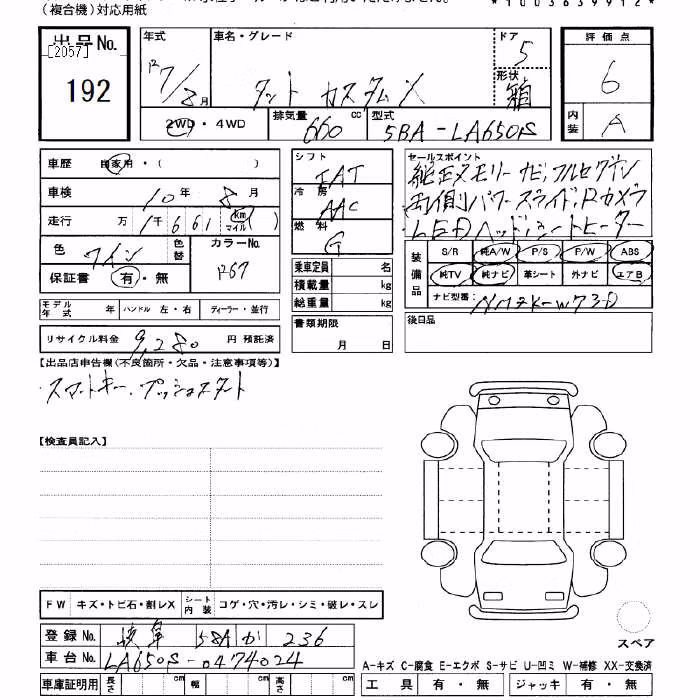 (複合機)対応用紙
*1003639912*
出品No.
[2057]
192
年式
R7/8月
車名・グレード
タント カスタムX
ドア
5
形状
箱
2WD・4WD
排気量
660 cc
型式
5BA-LA650S
評価点
6
内装
A
車歴 自家用・( )
車検 10年 8月
走行 万 1千661 (km マイル)
色 ワイン 色替
カラーNo. R67
保証書 有・無
モデル年式 年 ハンドル 左・右 ディーラー・並行
リサイクル料金 9,280 円 預託済
シフト
IAT
冷房
AAC
燃料
G
乗車定員 名
積載量 kg
総重量 kg
書類期限
月 日
セールスポイント
純正メモリーナビ,フルセグTV
両側パワースライド,Rカメラ
LEDヘッド,シートヒーター
装備品
S/R 純A/W P/S P/W ABS
純TV 純ナビ 革シート 外ナビ エアB
ナビ型番: NMZK-W73D
後日品
【出品店申告欄(不良箇所・欠品・注意事項等)】
・スマートキー,プッシュスタート
【検査員記入】
FW キズ・トビ石・割レX シート内装 コゲ・穴・汚レ・シミ・破レ・スレ
登録No. 岐阜 58A か 236
車台No. LA650S-0474024
車庫証明用 長さ cm 幅 cm 高さ cm
スペア
A-キズ C-腐食 E-エクボ S-サビ U-凹ミ W-補修 XX-交換済
工具 有・無 ジャッキ 有・無